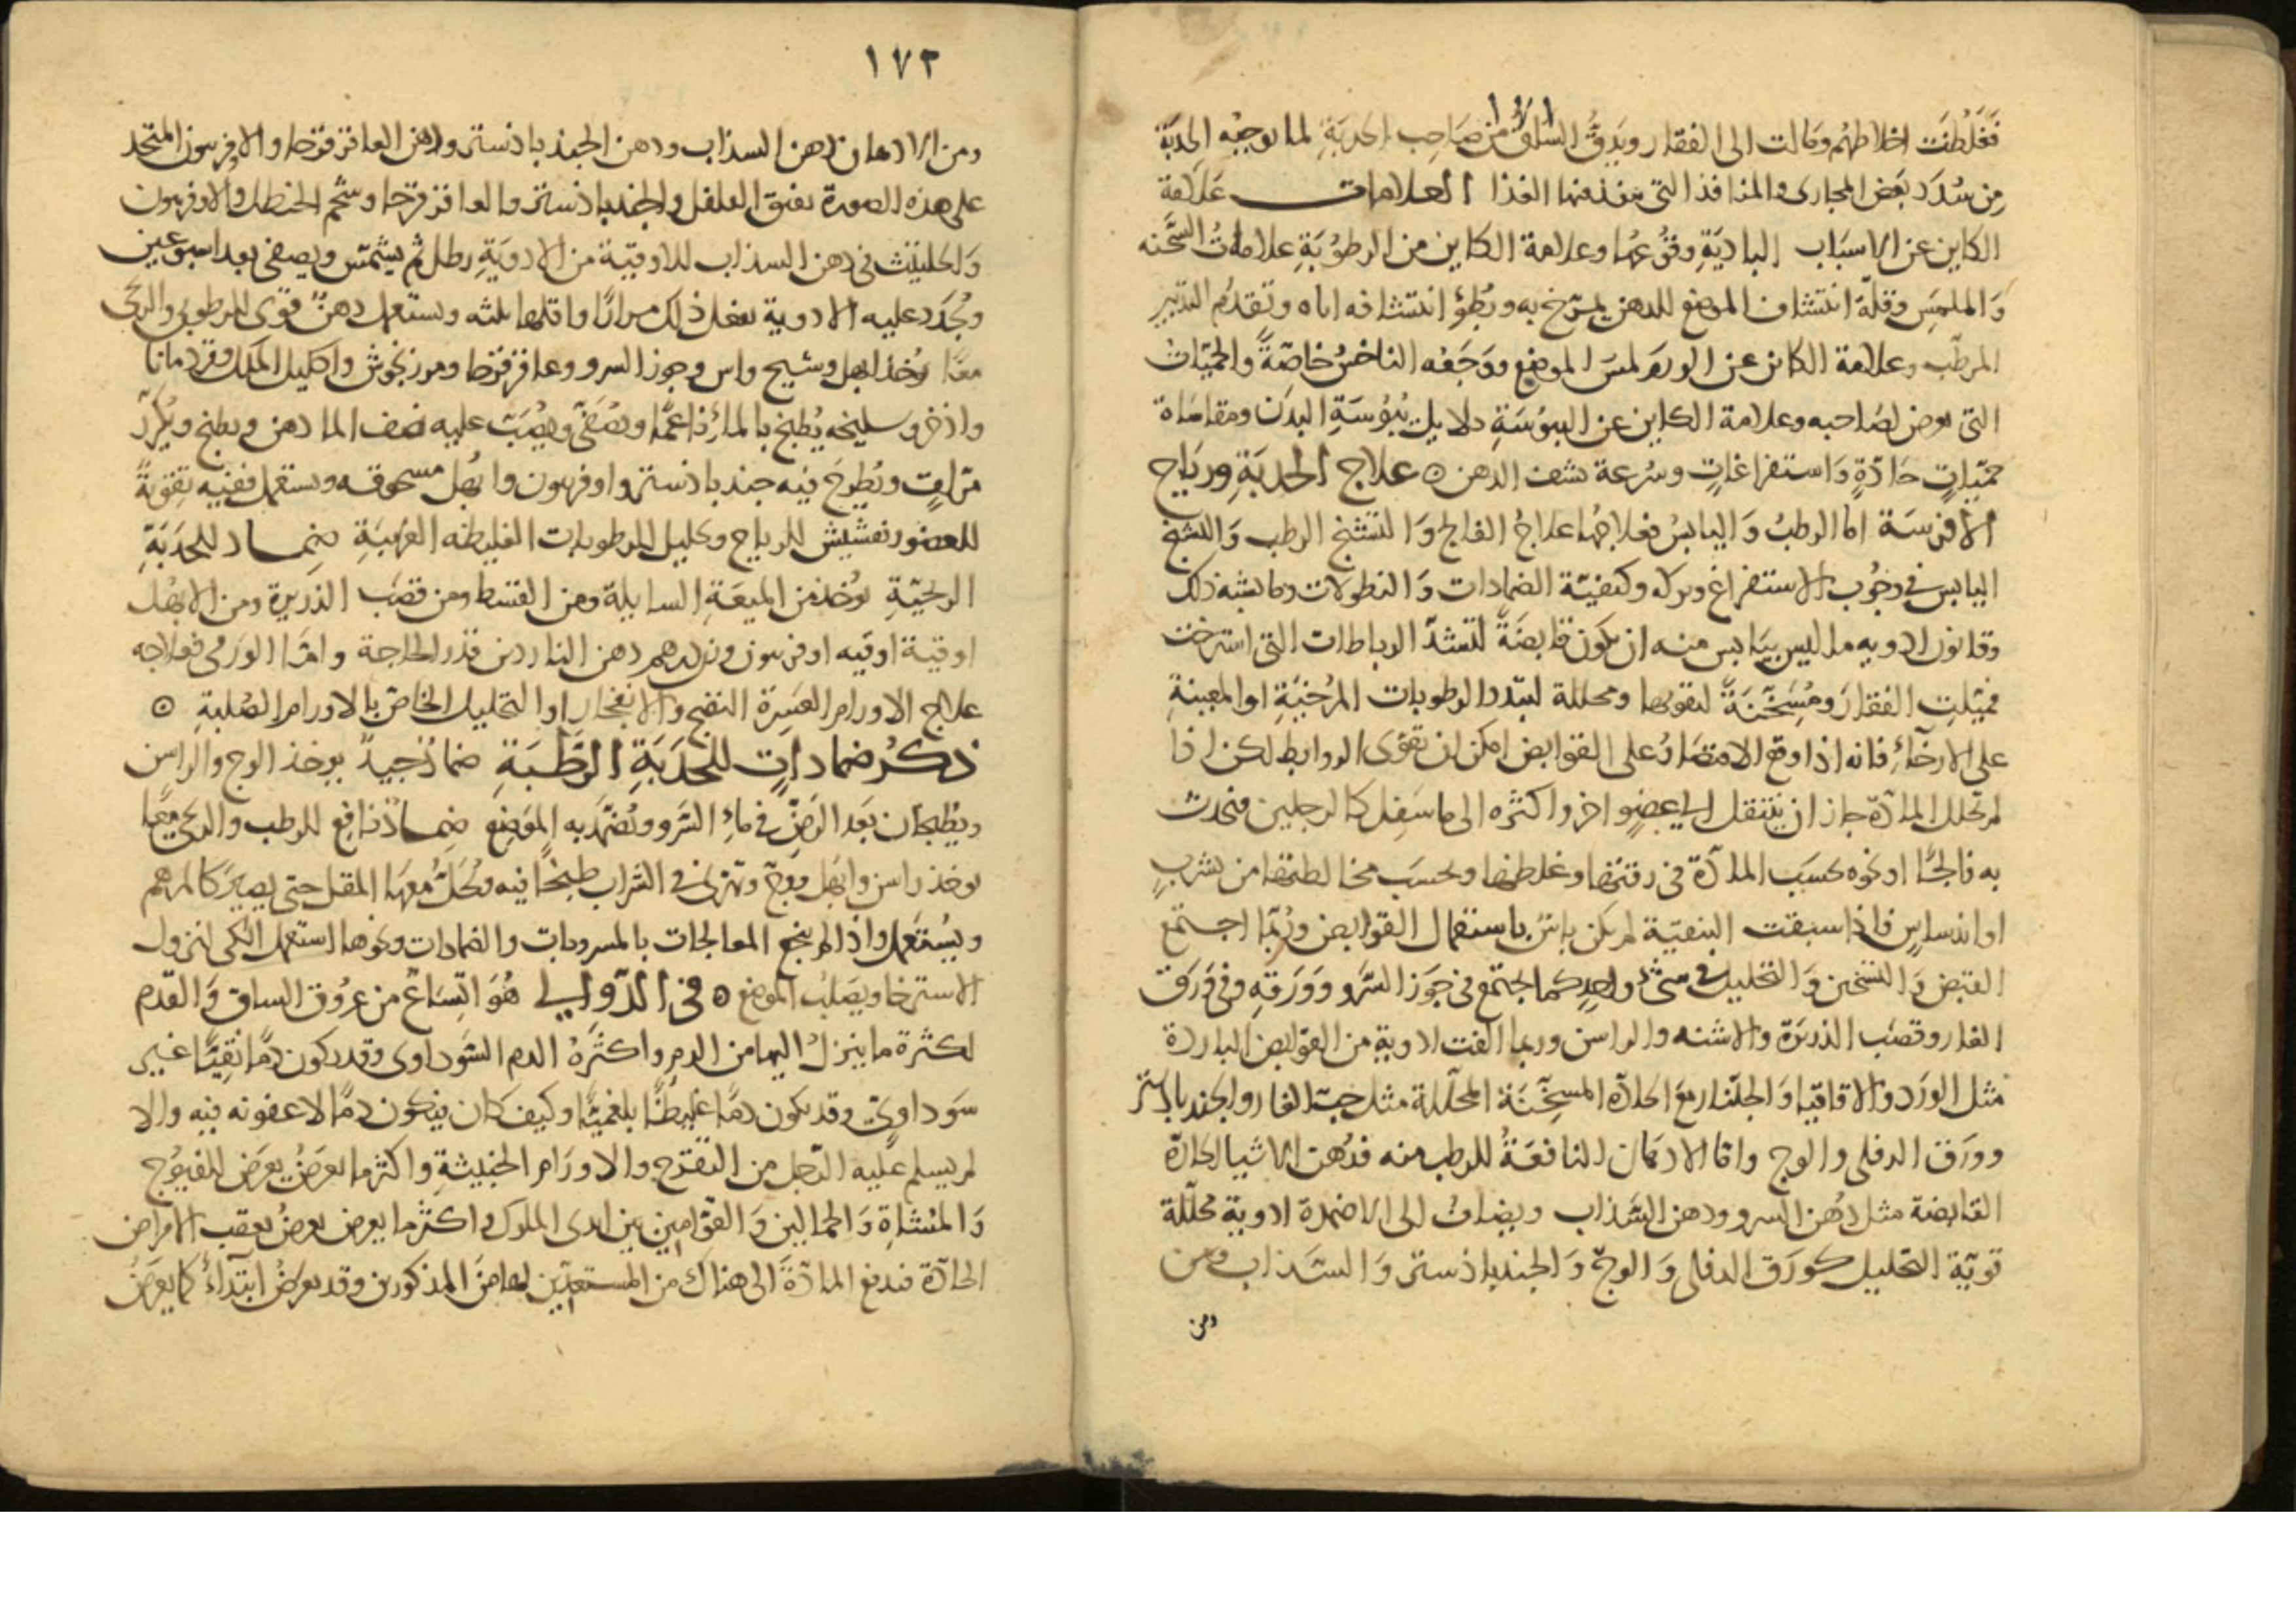 فَغَلُظَت اخلاطهُم ومالت الى الفقار ويَدِقُّ السّاقُ من صَاحِب الحدبَةِ لما توجبُه الحدبَة
مِن سُدَد بَعض المجارى والمنافذ التى ينفذ منها الغذا العلامات عَلامة
الكاين عن الاسبَاب البادِيَةِ وقُوعُها وعلامة الكاين من الرطوُبَةِ علاماتُ السَّحنه
وَالملمَسِ وقلّة انتشاف الموضع للدهن يمرّخ به وبُطؤ انتشافه اياه وتقدّم التدبير
المرطّب وعلامة الكائن عن الورَم لمسَ الموضع ووَجَعُه الناخسُ خاصّةً والحميّات
التى تعرض لصَاحبه وعلامة الكاين عن اليبُوسَةِ دلايل يُبُوسَةِ البدَن ومقاسَاة
حمّيَاتٍ حَادّةٍ وَاستفراغاتٍ وسُرعة نشف الدهن ⊙ علاج الحدبَةِ وريَاح
الأفرسَة اما الرطبُ وَاليابسُ فعلاجُهُا علاجُ الفالج وَالتشنّج الرطب وَالتشنّج
اليابس فى وجُوب الاستفراغ وتركه وكيفيّة الضمادات وَالنطولات وما يشبه ذلك
وقانون ادويه ما ليس بيَابس منه ان يكون قابضَةً لتشدّ الرباطات التى استرخت
فميّلتِ الفقارَ ومُسَخّنَةً لتقويها ومحللة لتبدد الرطوبات المرُخيَةِ او المعينةِ
على الارخاءِ فانه اذا وقع الاقتصَارُ على القوابض امكن ان تقوى الروابط لكن اذا
لم تحلل المادّة جاز ان ينتقل الى عضوٍ اخر واكثره الى ما سَفِل كالرجلين فيحدث
به فالجًا او نحوه بحسَب المادّة فى رقتها وغلظها وبحسَب مخالطتها من تشربٍ
او اندساسٍ فاذا سبقت التنقيَة لم يكن باسٌ باستعمال القوابض ورُبّما اجتمع
القبض وَالتسخين وَالتحليل فى شىءٍ واحدٍ كما اجتمع فى جَوز السَّرو وَوَرَقه وفى وَرَق
الغار وقصَب الذريَرة والاشنه والراسن وربما الفت ادوية من القوَابض الباردة
مثل الورَد والاقاقيا وَالجلّنار مع الحَادّة المسخّنَة المحلّلة مثل حبّ الغار والجندبادستر
ووَرَق الدفلى والوج واما الادهَان النافعَةُ للرطب منه فدُهن الاشيا الحادّة
القابضة مثل دُهن السرو ودهن السَّذاب ويضاف الى الاضمدة ادوية محلّلة
قويّة التحليل كورَق الدفلى وَالوجّ وَالجندباذستر وَالسَّذاب ومن
ومن
١٧٢
ومن الادهان دهن السذاب ودهن الجندباذستر ودهن العاقرقرحا والافربيون المتخد
على هذه الصورة يفتق الفلفل والجندباذستر والعاقرقرحا وشحم الحنظل والاوفربيون
وَالحلتيث فى دهن السذاب للاوقيّة من الادويَةِ رطل ثم يشمّس ويصفى بعد اسبوعين
ويُجَدّد عليه الادوية يفعل ذلك مرارًا واقلها ثلثه ويستعمل دهنٌ قوى للرطوبى والريحى
معًا يُوخذ ابهل وشيح واس وجوز السرو وعاقرقرحا ومرزنجوش واكليل الملك وقردمانا
واذخر وسليخه يُطبخ بالماءِ ناعمًا ويُصَفّى ويُصَبّ عليه نصف الماء دهن ويطبخ ويُكرّر
مرّاتٍ ويُطرحَ فيه جندباذستر واوفربيون وابهل مسحوقه ويستعمل ففيه تقويةً
للعضو وتفشيش للرياح وتحليل للرطوبات الغليظه الغريبَةِ ضِمَاد للحدَبَةِ
الريحيّةِ يُوخذ من الميعَةِ السايلة ومن القسط ومن قصَب الذريرة ومن الابهُل
اوقية اوقيه اوفربيون وزن درهم دهن الناردين قدر الحاجة وامّا الورَمى فعلاجه
علاج الاورام العَسِرَة النضج والانفجارِ او التحليل الخاصّ بالاورام الصُلبةِ ⊙
ذكر ضماداتٍ للحَدَبَةِ الرّطبَةِ ضمادٌ جيدٌ يوخذ الوج والراسن
ويُطبخان بَعد الرَضِّ فى ماءِ السَّرو ويُضَمّد به الموَضِع ضِمادٌ نافِع للرطب والريحى معًا
يوخذ راسن وابهَل ووجّ ويهرى فى الشراب طبخًا فيه ويُحَلّ معهَا المقل حتى يصيَر كالمرهم
ويُستَعمَل واذا لم ينجع المعالجات بالمسروبات والضمادات ونحوها استعمل الكى لتزول
الاسترخا ويَصَلبُ الموضع ⊙ فى الدّوالى هُوَ اتّسَاعٌ من عرُوق الساق وَالقدَم
لكثرة ما ينزلُ اليها من الدم واكثَرهُ الدم السَّوداوى وقد يكون دمًا نقِيًّا غير
سَوداوىّ وقد يكون دمًا غليظًا بلغميًّا وكيف كان فيكون دمًا لا عفونه فيه والا
لم يسلم عليه الرّجل من التقرّح والاورَام الخبيثةِ واكثر ما يعرَضُ يعرَض للفيوُج
وَالمُشاةِ وَالحمالين وَالقوّامين بين ايدى الملوك واكثر ما يعرض يعرضُ بعقب الامراض
الحَادّة فتدفع المادّةَ الى هناك من المستعدّين لها من المذكورين وقد يعرضُ ابتدَاءً كما يعرَضُ